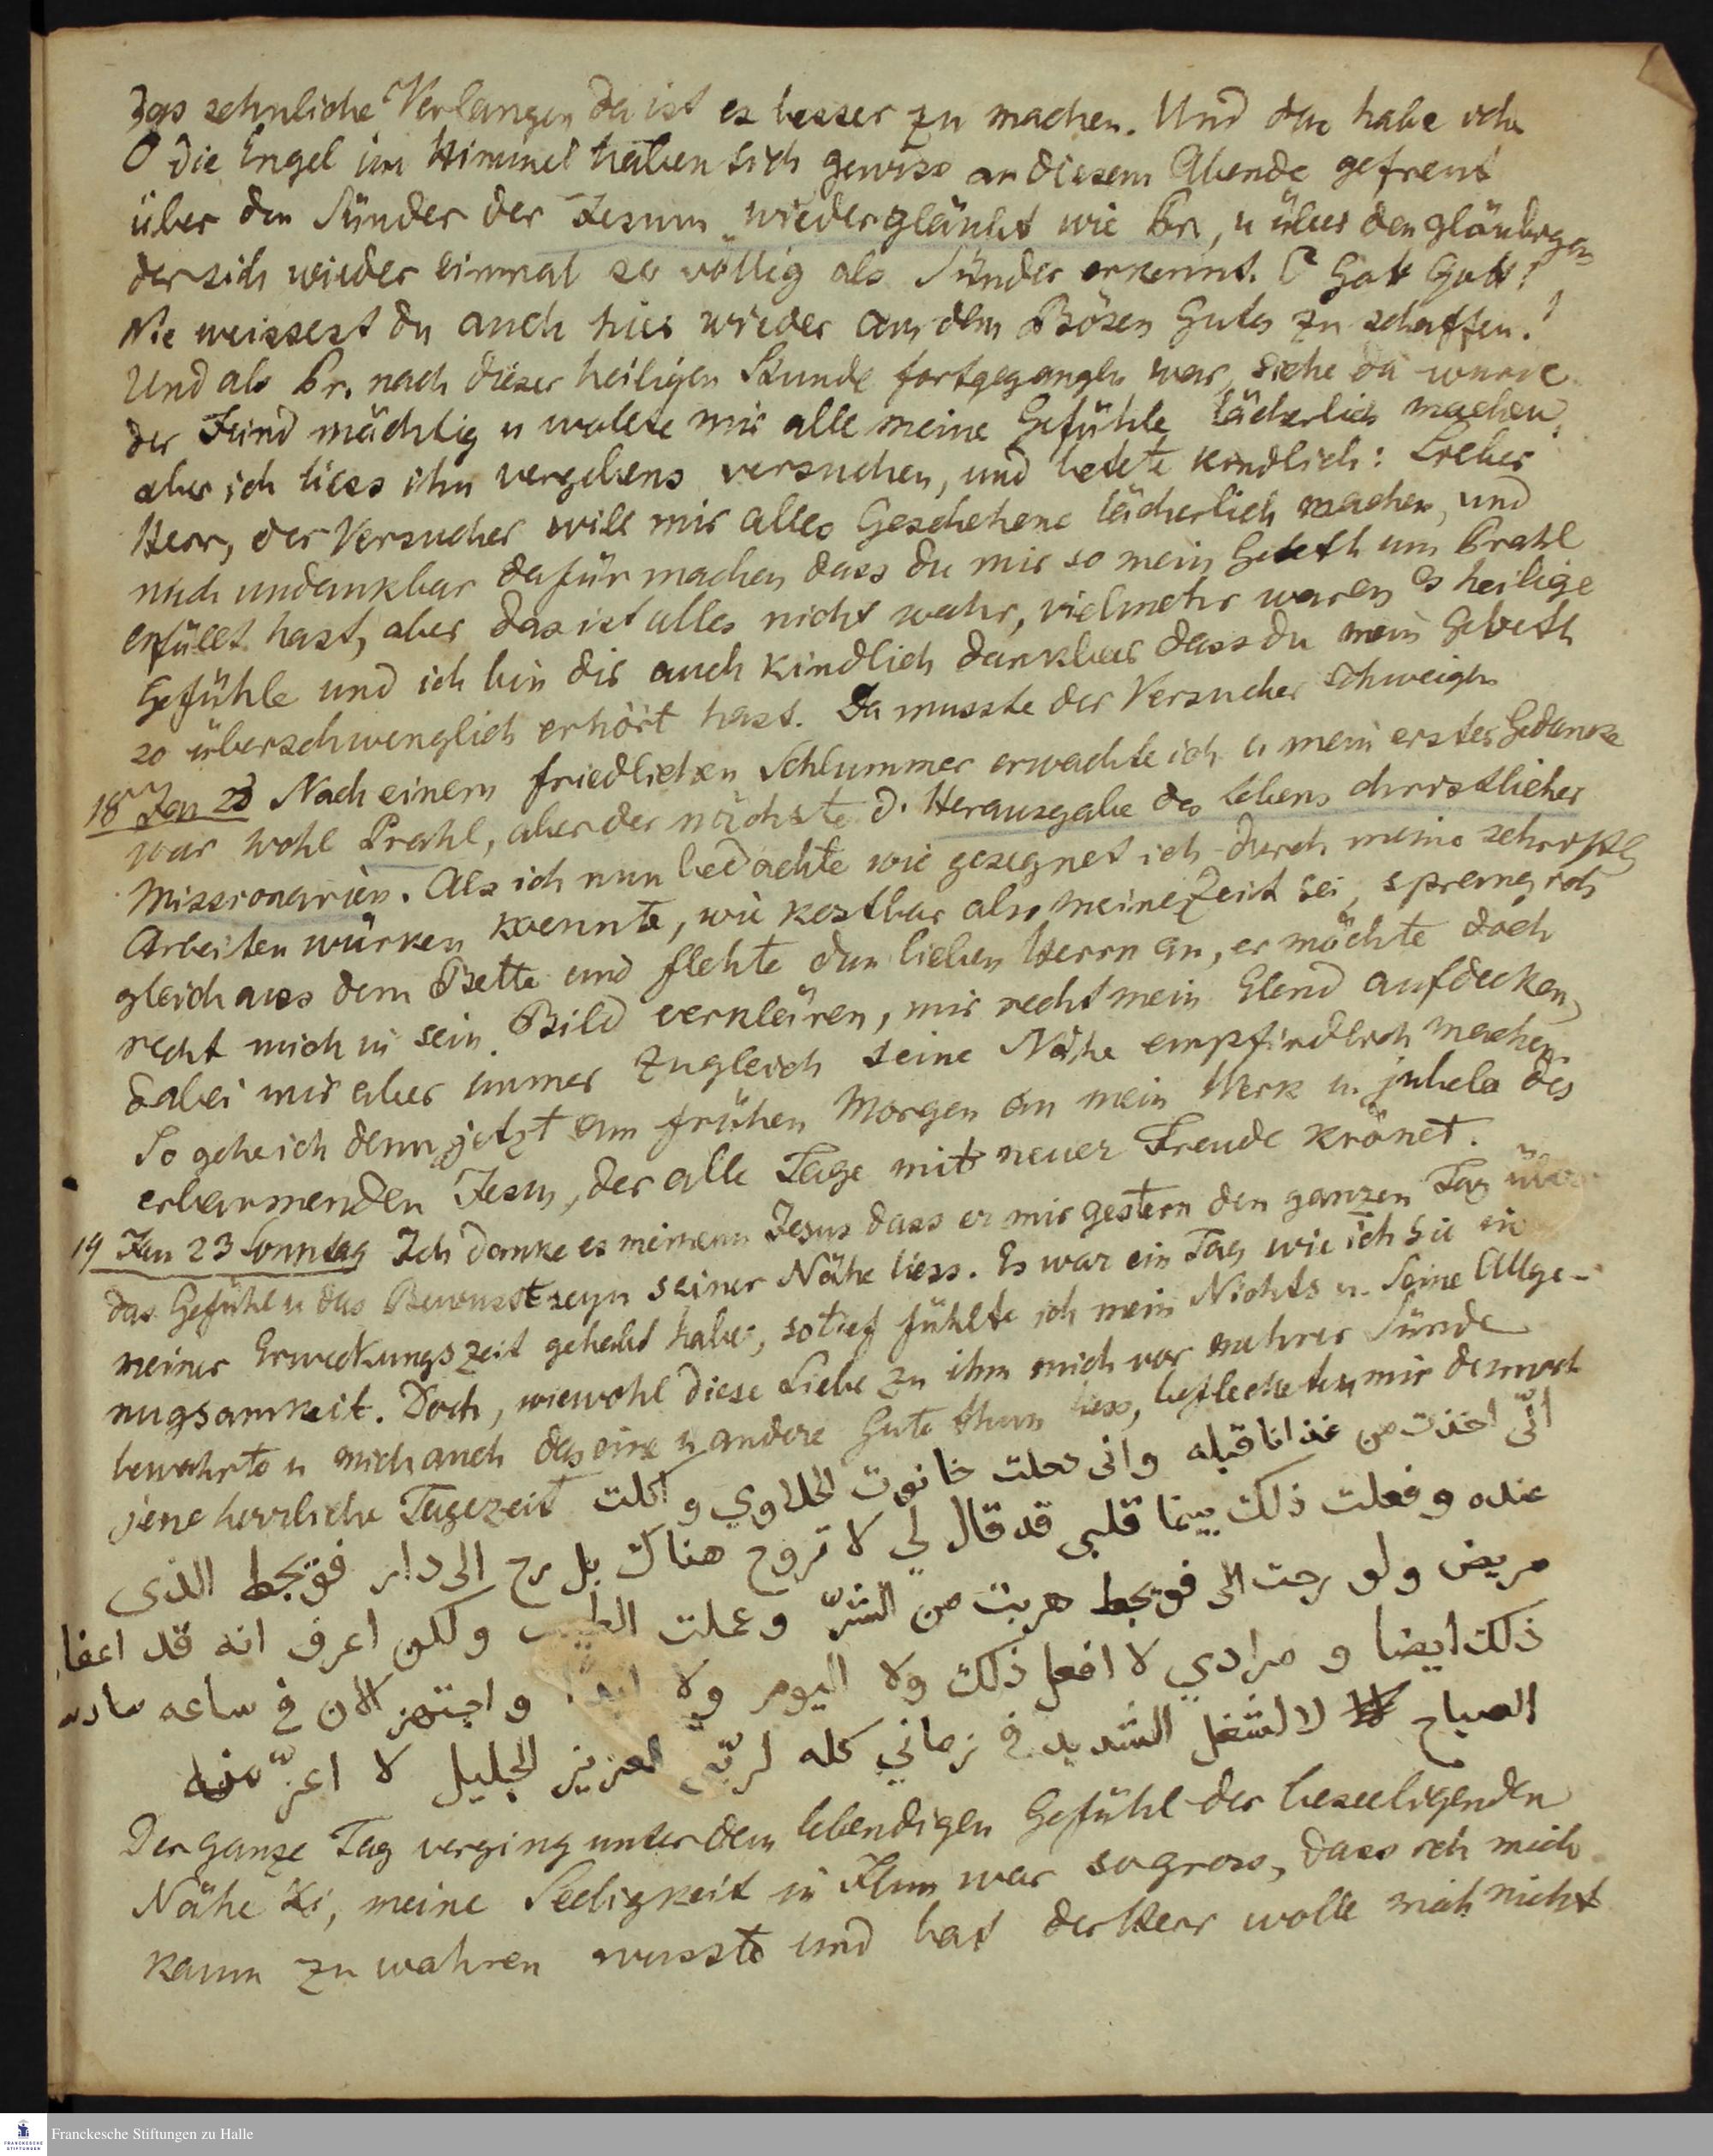 das sehnliche Verlangen da ist es besser zu machen. Und das habe ich
O die Engel im Himmel haben sich gewiss an diesem Abende gefreut
über den Sünder der Jesum wiedergläubt wie Br, u über den gläubigen
der sich wieder einmal so völlig als Sünder erkennt. O Gott Gott!
Wie weissest du auch hier wieder aus dem Bösen Gutes zu schaffen!
Und als Br. nach dieser heiligen Stunde fortgegangen war, siehe da wurde
der Feind mächtig u wollte mir alle meine Gefühle lächerlich machen,
aber ich liess ihn vergebens versuchen, und betete kindlich: Lieber
Herr, der Versucher will mir alles Geschehene lächerlich machen, und
mich undankbar dafür machen dass du mir so mein Gebeth um Brahl
erfüllt hast, aber das ist alles nicht wahr, vielmehr waren es heilige
Gefühle und ich bin dir auch kindlich dankbar dass du mein Gebeth
so überschwenglich erhört hast. Da musste der Versucher schweigen
18 Jan 23 Nach einem friedlichen Schlummer erwachte ich u mein erster Gedanke
war wohl Prahl, aber der nächste d. Herausgabe des Lebens christlicher
Missionarien. Als ich nun bedachte wie gesegnet ich durch meine schriftl
Arbeiten würken koennte, wie kostbar also meine Zeit sei, sprang ich
gleich aus dem Bette und flehte den lieben Herrn an, er möchte doch
recht mich in sein Bild verklären, mir recht mein Elend aufdecken,
dabei mir aber immer zugleich seine Nähe empfindlich machen.
So gehe ich denn jetzt am frühen Morgen an mein Werk u. juble des
erbarmenden Jesus, der alle Tage mit neuer Freude krönet.
19 Jan 23 Sonntag Ich danke es meinem Jesus dass er mir gestern den ganzen Tag über
das Gefühl u das Bewusstseyn seiner Nähe liess. Es war ein Tag wie ich sie in
meiner Erweckungszeit gehabt habe, so tief fühlte ich mein Nichts u. Seine Allge-
nugsamkeit. Doch, wiewohl diese Liebe zu ihm mich vor mehrer Sünde
bewahrte u mich auch das eine u andere Gute thun liess, befleckten mir dennoch
jene herrliche Tageszeit انّى اخذت من غذانا قبله وانى دخلت خانوت الحلاوي واكلت
عنده وفعلت ذلك بينما قلبى قد قال لي لا تروح هناك بل رح الى دار فوىجط الذى
مريض ولو رحت الى فوىجط هربت من الشرّ وعملت ولكن اعرف انه قد اعفا
ذلك ايضا و مرادي لا افعل ذلك ولا اليوم ولا واجتهز الان فى ساعه
الصباح لا لشغل الشديد فى زماني كله لربّى العزيز الجليل لا اعزّ منه
Der ganze Tag verging unter dem lebendigen Gefühl der beseeligenden
Nähe Xi, meine Seeligkeit in Ihm war so gross, dass ich mich
kaum zu wahren wusste und bat der Herr wolle mich nicht
Franckesche Stiftungen zu Halle